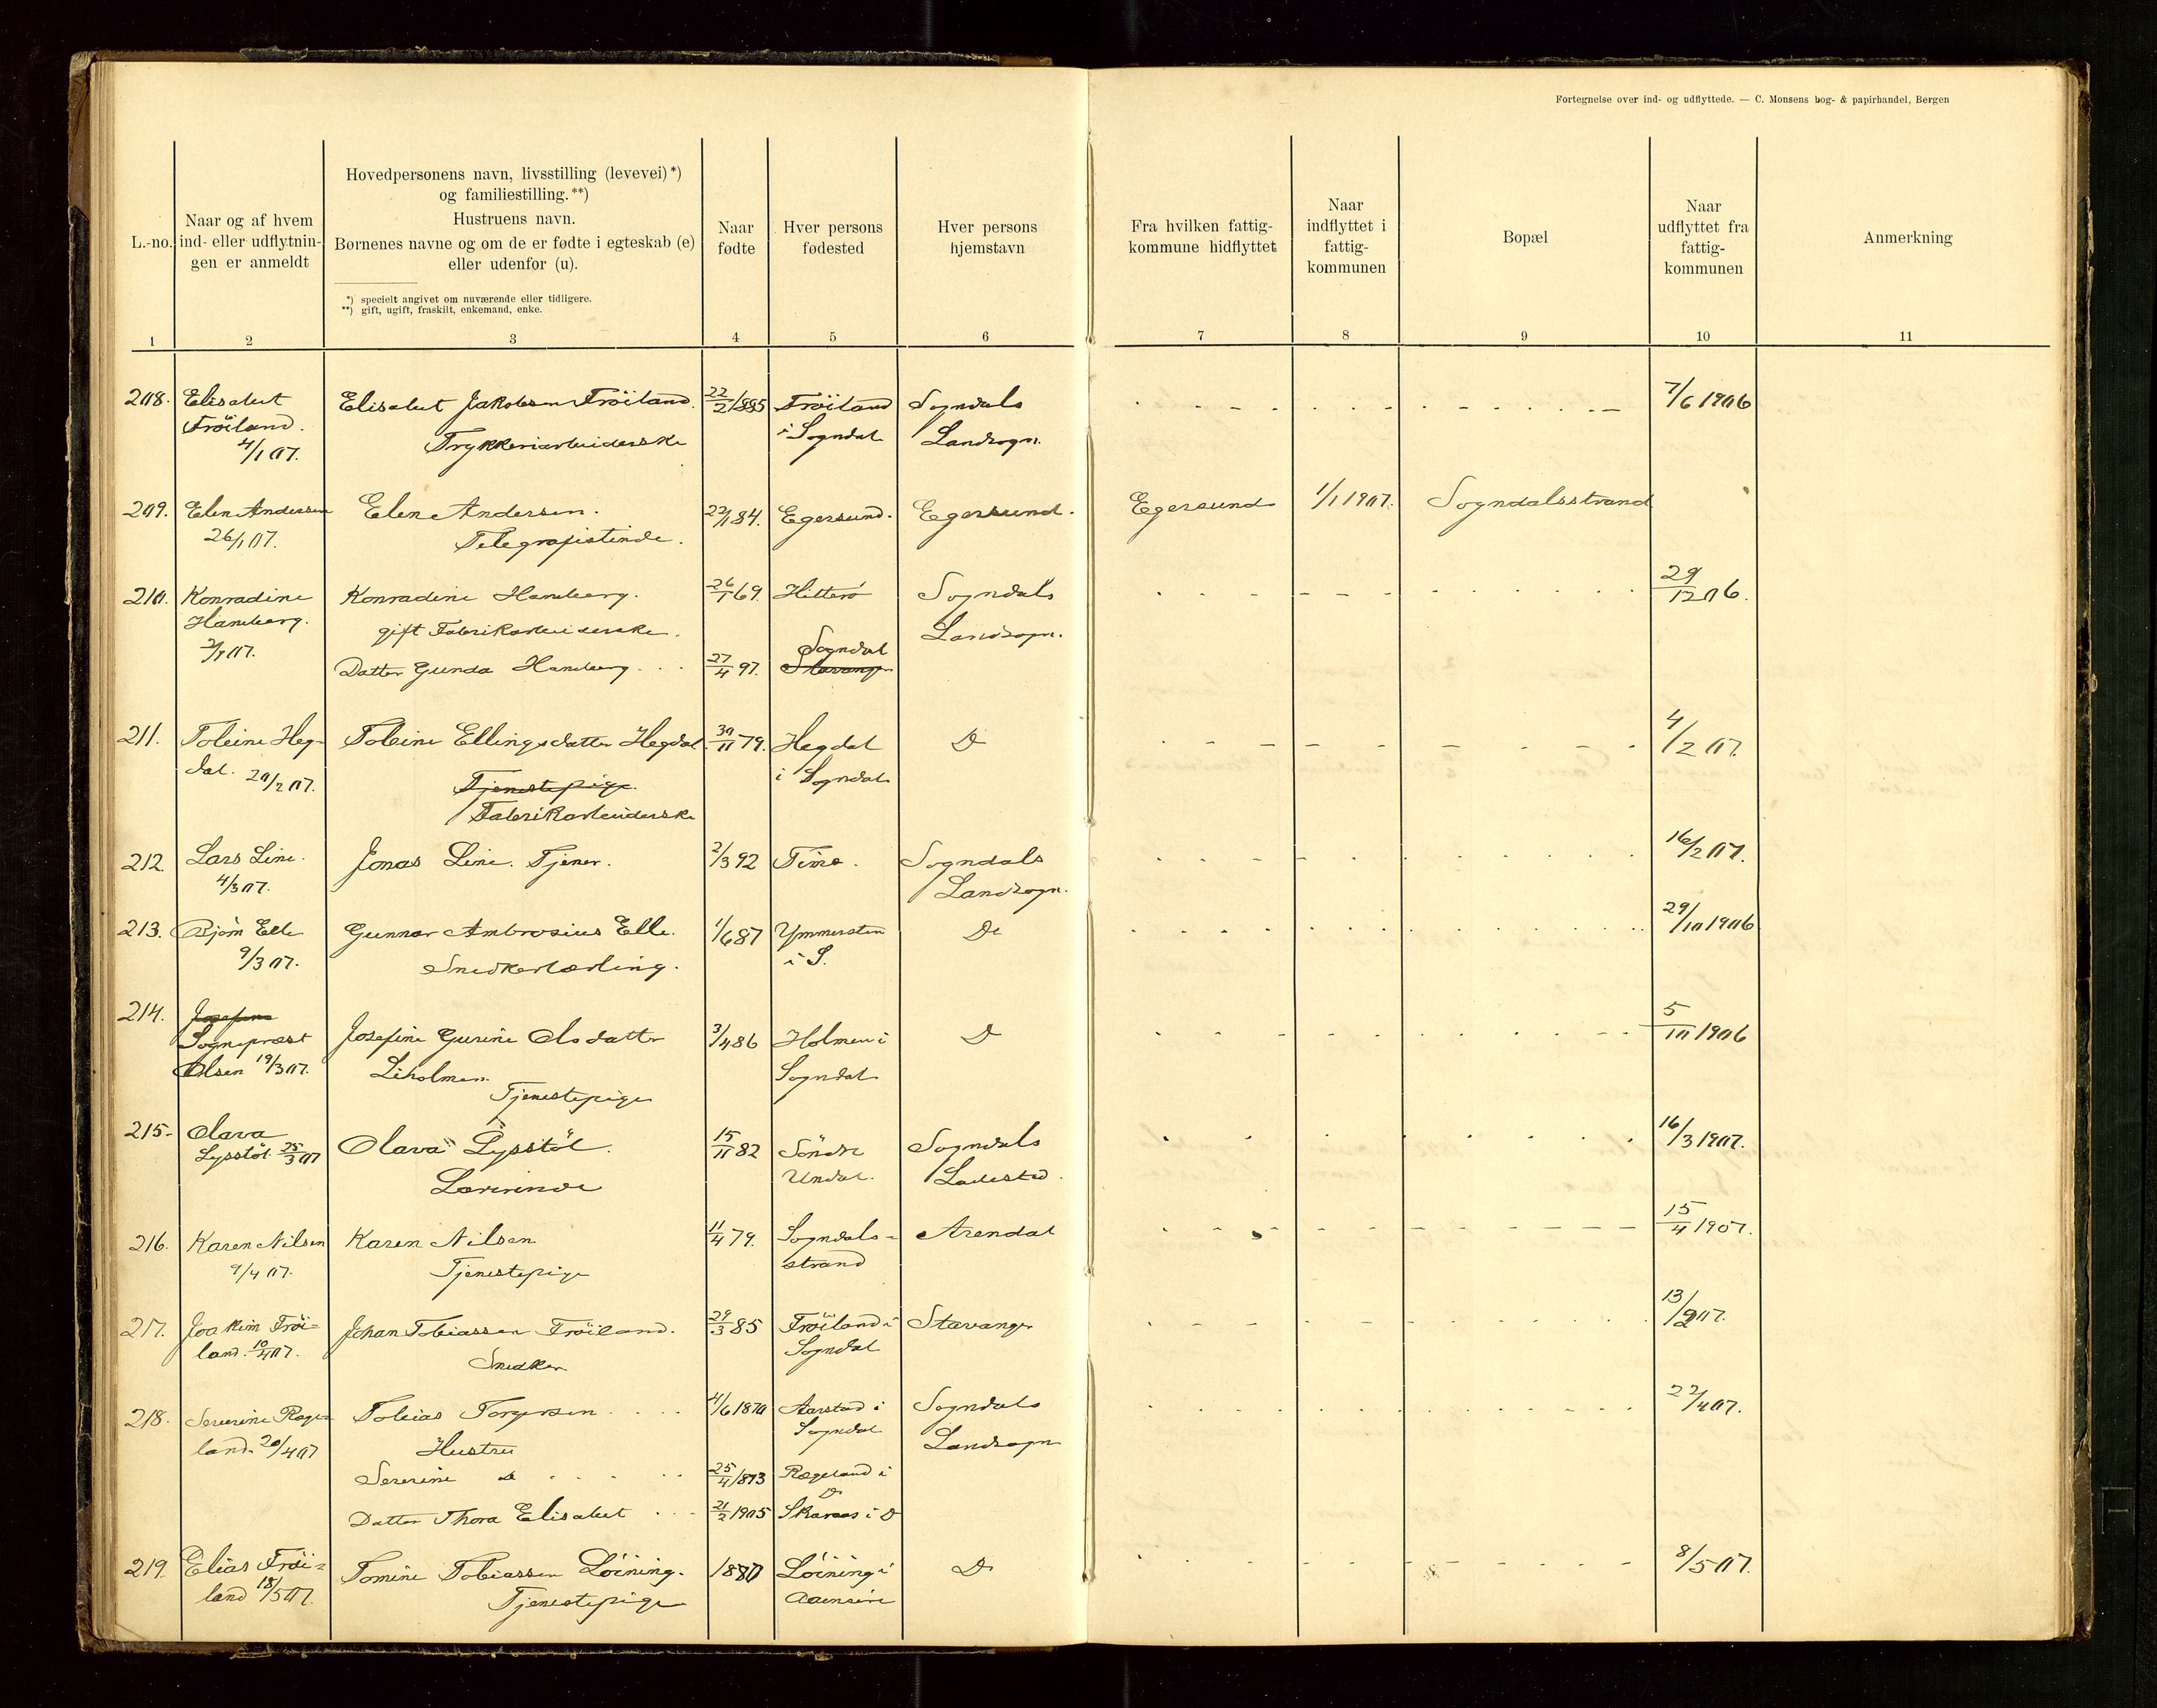 Fortegnelse over ind- og udflyttede. — C. Monsens bog- & papirhandel, Bergen
L.-no.
Naar og af hvem
ind- eller udflytnin-
gen er anmeldt
Hovedpersonens navn, livsstilling (levevei)*)
og familiestilling.**)
Hustruens navn.
Børnenes navne og om de er fødte i egteskab (e)
eller udenfor (u).
*) specielt angivet om nuværende eller tidligere.
**) gift, ugift, fraskilt, enkemand, enke.
Naar
fødte
Hver persons
fødested
Hver persons
hjemstavn
Fra hvilken fattig-
kommune hidflyttet
Naar
indflyttet i
fattig-
kommunen
Bopæl
Naar
udflyttet fra
fattig-
kommunen
Anmerkning
1 2 3 4 5 6 7 8 9 10 11
208. Elisabet Elisabet Jakobsen Fröiland. 22/2 1885 Fröiland Sogndals 7/6 1906
Fröiland. Trykkeriarbeiderske i Sogndal Landsogn.
4/1 07.
209. Elen Andersen Elen Andersen. 22/1 84. Egersund. Egersund. Egersund 1/1 1907. Sogndalsstrand
26/1 07. Telegrafistinde.
210. Konradine Konradine Hamberg. 26/1 69. Hitterö Sogndals 29/12 06.
Hamberg. gift Fabrikarbeiderske. Landsogn.
07. Sogndal
Datter Gunda Hamberg 27/4 97. Stavanger
211. Tobine Heg- Tobine Ellingsdatter Hegdal. 30/11 79. Hegdal D 4/2 07.
dal. 20/2 07. Tjenestepige. i Sogndal
Fabrikarbeiderske
212. Lars Line. Jonas Line. Tjener. 2/3 92 Time. Sogndals 16/2 07.
4/3 07. Landsogn.
213. Bjørn Elle Gunnar Ambrosius Elle. 1/6 87 Ymmersten Do 29/10 1906
9/3 07. Snedkerlærling. i S.
214. Josefine
Sogneprest Josefine Gurine Olsdatter 3/4 86 Holmen i D 5/10 1906
Olsen 19/3 07. Liholmen. Sogndal
Tjenestepige
215. Olava Olava Lysstöl. 15/11 82 Söndre Sogndals 16/3 1907.
Lysstöl. 25/3 07 Lærerinde Undal. Ladested.
216. Karen Nilsen Karen Nilsen 11/4 79. Sogndals- Arendal 15/4 1907.
9/4 07. Tjenestepige strand
217. Joakim Fröi- Johan Tobiassen Fröiland. 29/3 85 Fröiland i Stavanger 13/2 07.
land. 10/4 07. Snedker Sogndal
218. Severine Rage- Tobias Torgersen 4/6 1870 Aarstad i Sogndals 22/4 07.
land. 20/4 07 Hustru Sogndal Landsogn
Severine do 25/4 1873 Rægeland i
D
Datter Thora Elisabet 21/2 1905 Skaraas i D
219. Elias Fröi- Tomine Tobiassen Löining. 1880 Löining i D 8/5 07.
land 18/5 07. Tjenestepige Aaensire